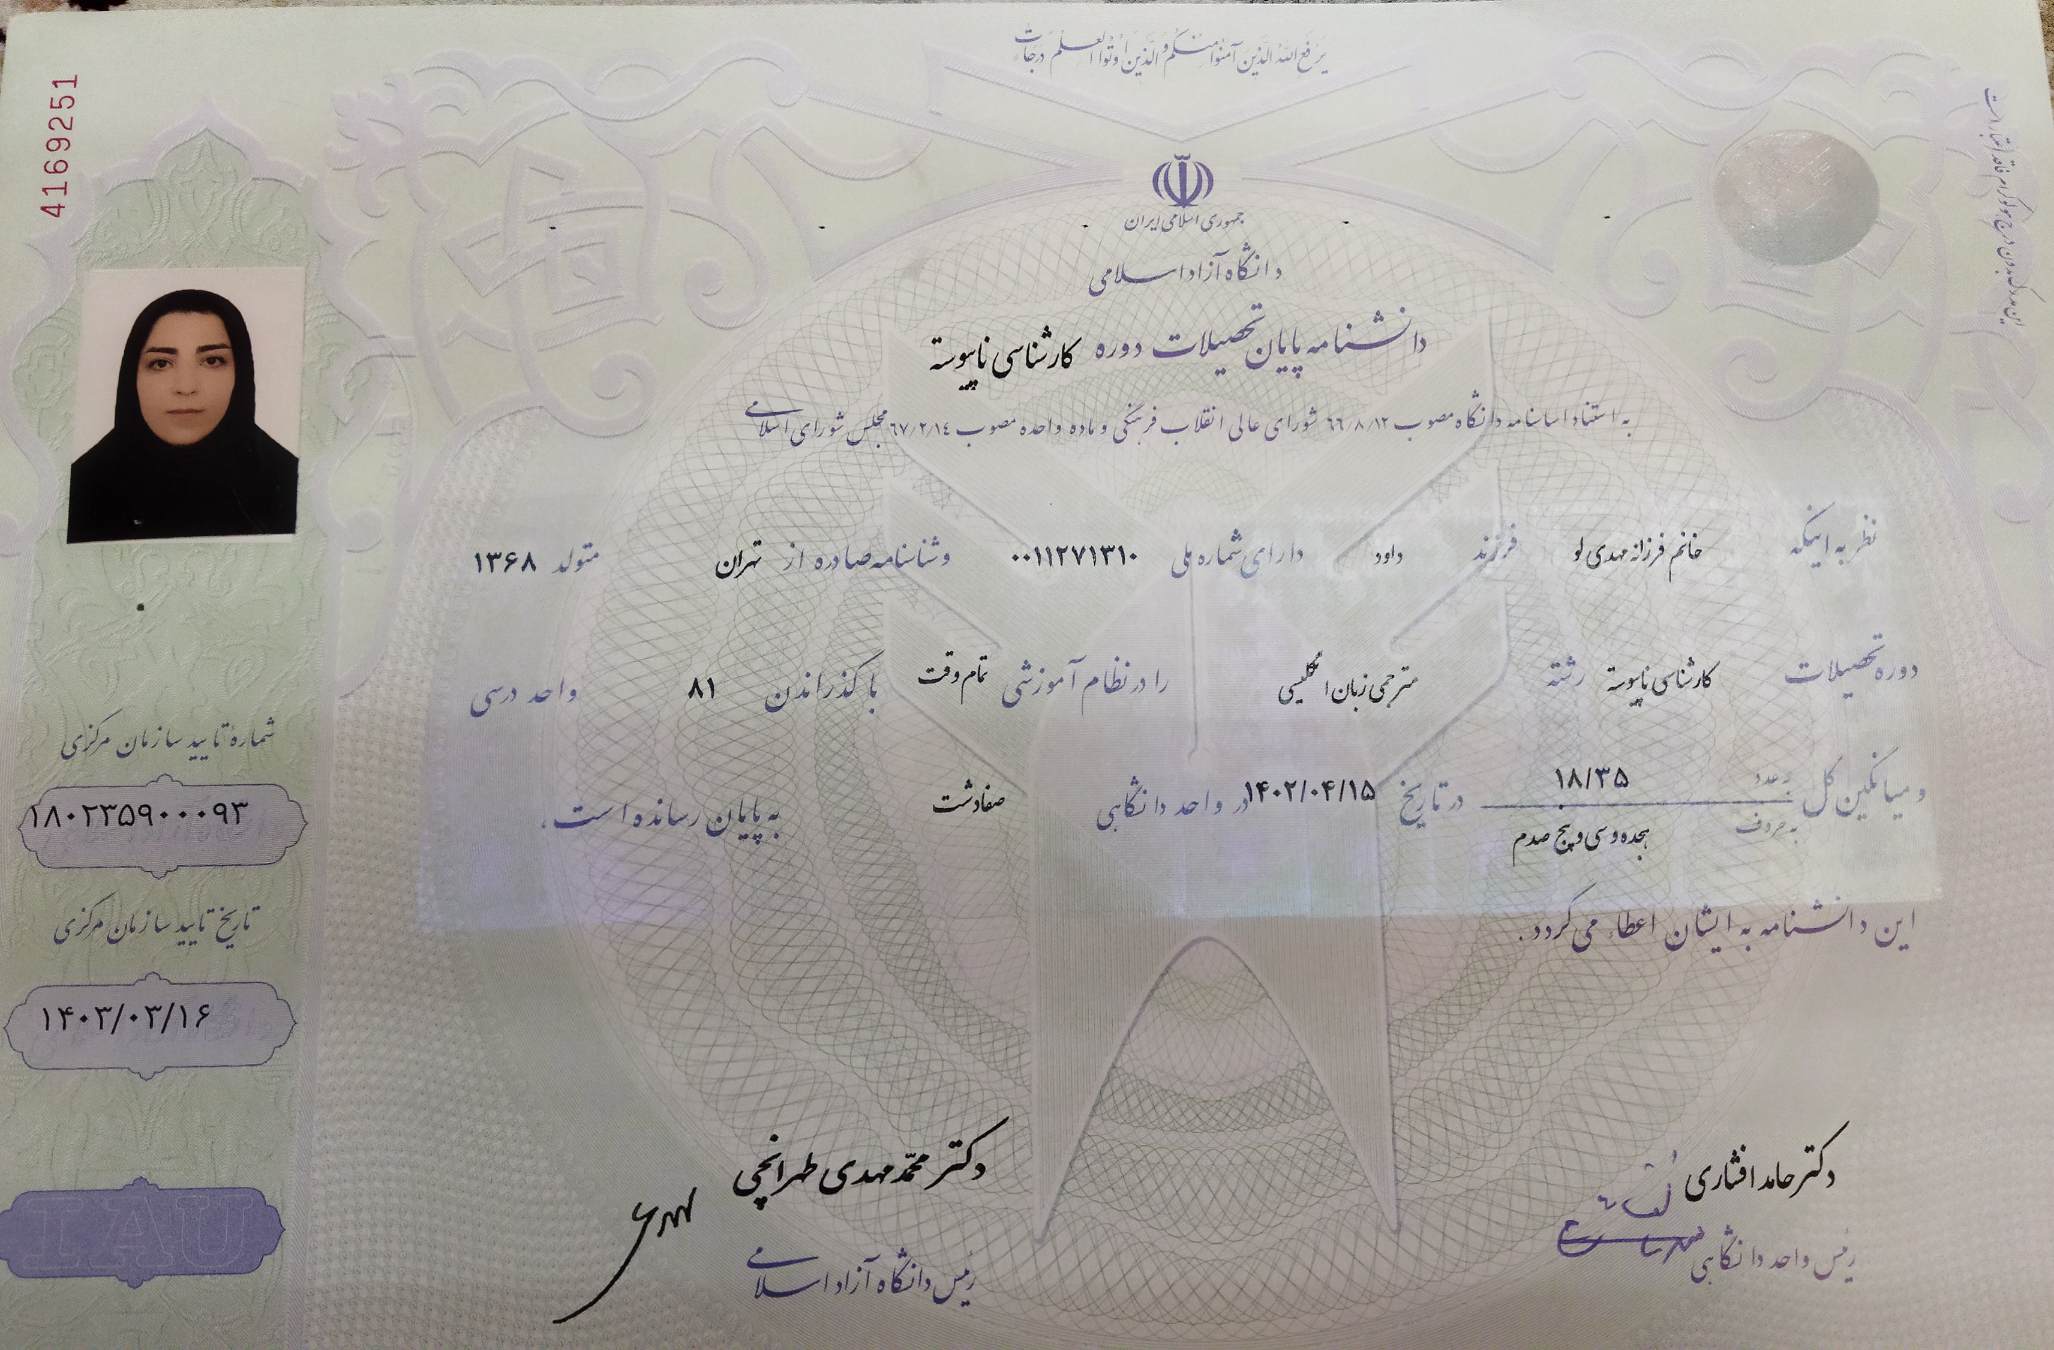 یرفع الله الذین آمنوا منکم و الذین اوتوا العلم درجات
4169251
این مدرک بدون درج هولوگرام فاقد اعتبار است
جمهوری اسلامی ایران
دانشگاه آزاد اسلامی
دانشنامه پایان تحصیلات دوره کارشناسی ناپیوسته
به استناد اساسنامه دانشگاه مصوب ۶۶/۸/۱۲ شورای عالی انقلاب فرهنگی و ماده واحده مصوب ۶۷/۲/۱۴ مجلس شورای اسلامی
نظر به اینکه خانم فرزانه مهدی لو فرزند داود دارای شماره ملی ۰۰۱۱۲۷۱۳۱۰ و شناسنامه صادره از تهران متولد ۱۳۶۸
دوره تحصیلات کارشناسی ناپیوسته رشته مترجمی زبان انگلیسی را در نظام آموزشی تمام وقت با گذراندن ۸۱ واحد درسی
و میانگین کل به عدد ۱۸/۳۵ به حروف هجده و سی و پنج صدم در تاریخ ۱۴۰۲/۰۴/۱۵ در واحد دانشگاهی صفادشت به پایان رسانده است.
این دانشنامه به ایشان اعطاء می گردد.
شمارۀ تایید سازمان مرکزی
۱۸۰۲۳۵۹۰۰۰۹۳
تاریخ تایید سازمان مرکزی
۱۴۰۳/۰۳/۱۶
IAU
دکتر حامد افشاری
رئیس واحد دانشگاهی
دکتر محمد مهدی طهرانچی
رئیس دانشگاه آزاد اسلامی